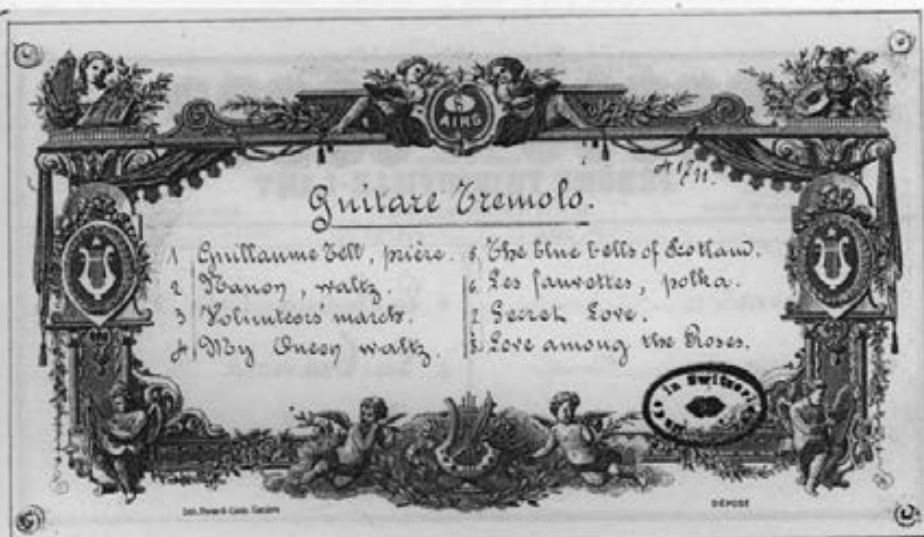 8
AIRS
Guitare Tremolo.
1 Guillaume Tell, prière.
2 Manon, waltz.
3 Volunteers march.
4 My Queen waltz.
5 The blue bells of Scotland.
6 Les fauvettes, polka.
7 Secret Love.
8 Love among the Roses.
in Switzerl
DÉPOSÉ